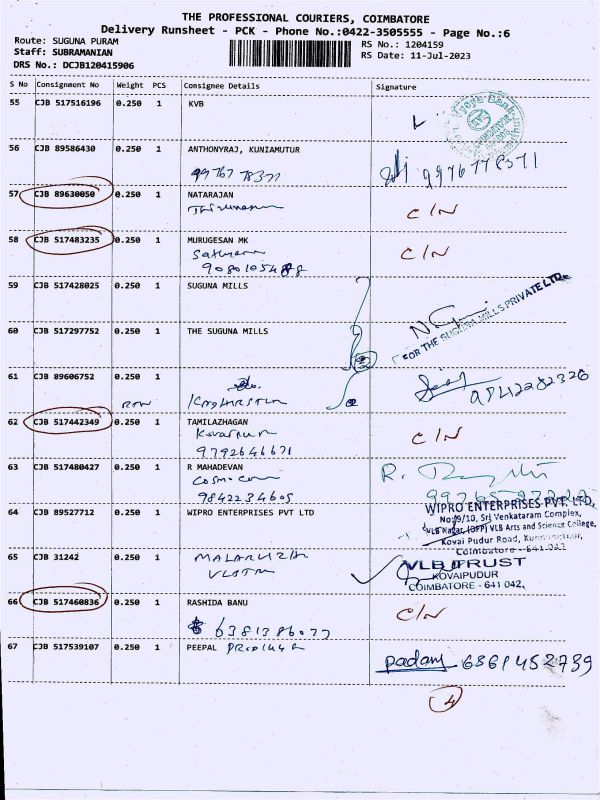 THE PROFESSIONAL COURIERS, COIMBATORE
Delivery Runsheet - PCK - Phone No.:0422-3505555 - Page No.:6
Route: SUGUNA PURAM
RS No.: 1204159
Staff: SUBRAMANIAN
RS Date: 11-Jul-2023
DRS No.: DCJB120415906
S No Consignment No Weight PCS Consignee Details Signature
55 CJB 517516196 0.250 1 KVB
56 CJB 89586430 0.250 1 ANTHONYRAJ, KUNIAMUTUR
99767 78371 9976778371
57 CJB 89630050 0.250 1 NATARAJAN
C/N
58 CJB 517483235 0.250 1 MURUGESAN MK
C/N
59 CJB 517428025 0.250 1 SUGUNA MILLS
FOR THE SUGUNA MILLS PRIVATE LTD.
60 CJB 517297752 0.250 1 THE SUGUNA MILLS
61 CJB 89606752 0.250 1
9842282328
62 CJB 517442349 0.250 1 TAMILAZHAGAN
C/N
9792646671
63 CJB 517480427 0.250 1 R MAHADEVAN
9842234605
64 CJB 89527712 0.250 1 WIPRO ENTERPRISES PVT LTD
WIPRO ENTERPRISES PVT. LTD.
No:9/10, Sri Venkataram Complex,
VLB Nagar, (OPP) VLB Arts and Science College,
Kovai Pudur Road,
Coimbatore - 641 042
65 CJB 31242 0.250 1
VLB TRUST
KOVAIPUDUR
COIMBATORE - 641 042.
66 CJB 517460836 0.250 1 RASHIDA BANU
C/N
6381386077
67 CJB 517539107 0.250 1 PEEPAL
padany 6361452739
4